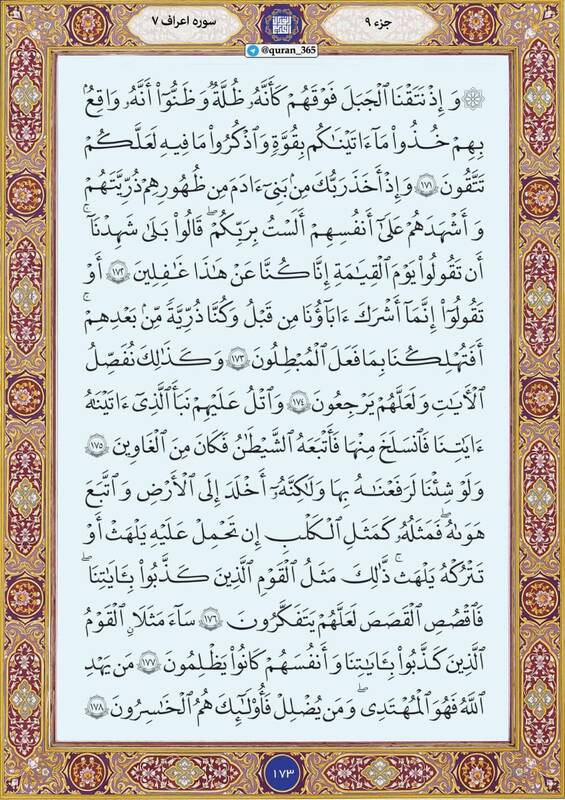 جزء ۹
سوره اعراف ۷
@quran_365
۞ وَإِذْ نَتَقْنَا ٱلْجَبَلَ فَوْقَهُمْ كَأَنَّهُۥ ظُلَّةٌۭ وَظَنُّوٓا۟ أَنَّهُۥ وَاقِعٌۢ
بِهِمْ خُذُوا۟ مَآ ءَاتَيْنَـٰكُم بِقُوَّةٍۢ وَٱذْكُرُوا۟ مَا فِيهِ لَعَلَّكُمْ
تَتَّقُونَ ۝١٧١ وَإِذْ أَخَذَ رَبُّكَ مِنۢ بَنِىٓ ءَادَمَ مِن ظُهُورِهِمْ ذُرِّيَّتَهُمْ
وَأَشْهَدَهُمْ عَلَىٰٓ أَنفُسِهِمْ أَلَسْتُ بِرَبِّكُمْ ۖ قَالُوا۟ بَلَىٰ شَهِدْنَآ ۛ
أَن تَقُولُوا۟ يَوْمَ ٱلْقِيَـٰمَةِ إِنَّا كُنَّا عَنْ هَـٰذَا غَـٰفِلِينَ ۝١٧٢ أَوْ
تَقُولُوٓا۟ إِنَّمَآ أَشْرَكَ ءَابَآؤُنَا مِن قَبْلُ وَكُنَّا ذُرِّيَّةًۭ مِّنۢ بَعْدِهِمْ ۖ
أَفَتُهْلِكُنَا بِمَا فَعَلَ ٱلْمُبْطِلُونَ ۝١٧٣ وَكَذَٰلِكَ نُفَصِّلُ
ٱلْـَٔايَـٰتِ وَلَعَلَّهُمْ يَرْجِعُونَ ۝١٧٤ وَٱتْلُ عَلَيْهِمْ نَبَأَ ٱلَّذِىٓ ءَاتَيْنَـٰهُ
ءَايَـٰتِنَا فَٱنسَلَخَ مِنْهَا فَأَتْبَعَهُ ٱلشَّيْطَـٰنُ فَكَانَ مِنَ ٱلْغَاوِينَ ۝١٧٥
وَلَوْ شِئْنَا لَرَفَعْنَـٰهُ بِهَا وَلَـٰكِنَّهُۥٓ أَخْلَدَ إِلَى ٱلْأَرْضِ وَٱتَّبَعَ
هَوَىٰهُ ۚ فَمَثَلُهُۥ كَمَثَلِ ٱلْكَلْبِ إِن تَحْمِلْ عَلَيْهِ يَلْهَثْ أَوْ
تَتْرُكْهُ يَلْهَث ۚ ذَّٰلِكَ مَثَلُ ٱلْقَوْمِ ٱلَّذِينَ كَذَّبُوا۟ بِـَٔايَـٰتِنَا ۚ
فَٱقْصُصِ ٱلْقَصَصَ لَعَلَّهُمْ يَتَفَكَّرُونَ ۝١٧٦ سَآءَ مَثَلًا ٱلْقَوْمُ
ٱلَّذِينَ كَذَّبُوا۟ بِـَٔايَـٰتِنَا وَأَنفُسَهُمْ كَانُوا۟ يَظْلِمُونَ ۝١٧٧ مَن يَهْدِ
ٱللَّهُ فَهُوَ ٱلْمُهْتَدِى ۖ وَمَن يُضْلِلْ فَأُو۟لَـٰٓئِكَ هُمُ ٱلْخَـٰسِرُونَ ۝١٧٨
۱۷۳